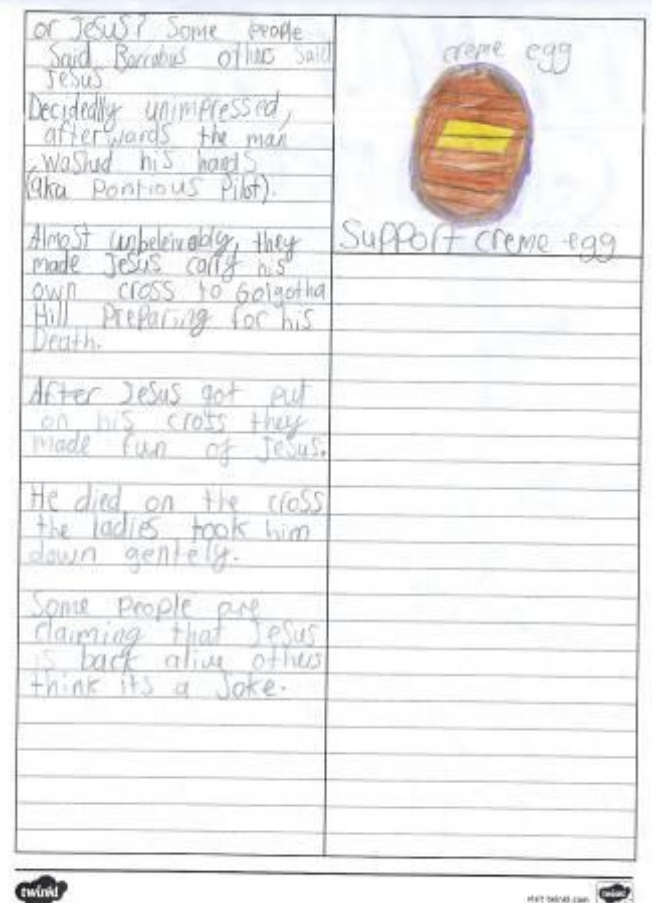 or Jesus? Some people
Said Barrabus others said
Jesus
Decidedly unimpressed,
afterwards the man
washed his hands
(aka Pontious Pilot).
Almost unbeleivably, they
made Jesus carry his
own cross to Golgotha
Hill Preparing for his
Death.
After Jesus got put
on his cross they
made fun of Jesus.
He died on the cross
the ladies took him
down gentely.
Some People are
claiming that Jesus
is back alive others
think its a Joke.
creme egg
Support creme egg
twinkl
visit twinkl.com
twinkl